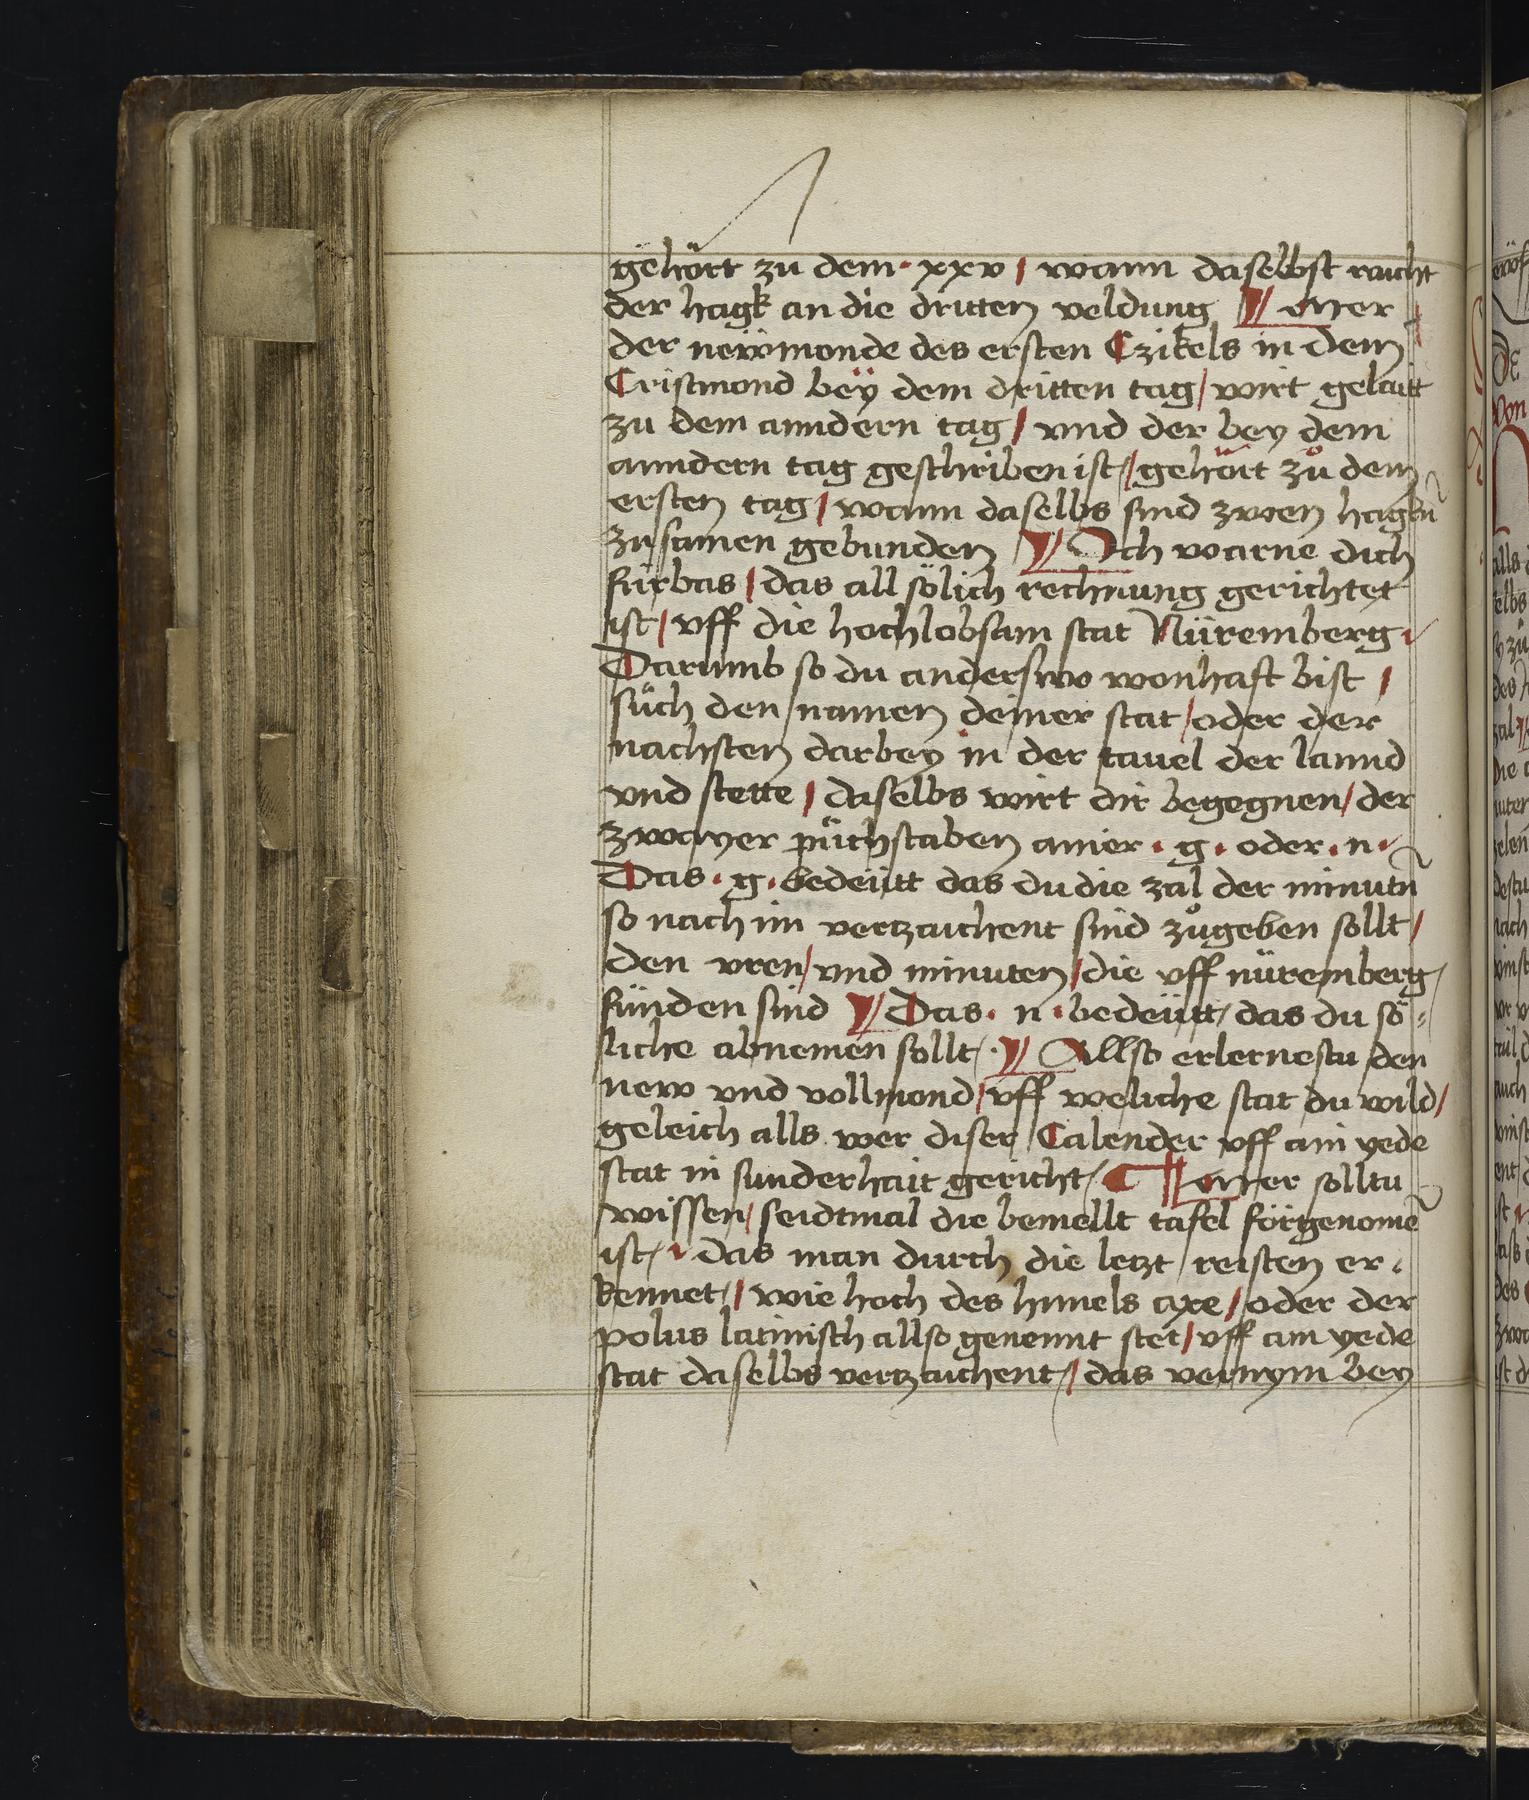 gehört zu dem · xxv / wann daselbst raicht
der hagk an die dritten veldung ¶ Mer
der newmonde des ersten Czikels in dem
Cristmond beÿ dem dritten tag / wirt gelaitt
zu dem anndern tag / vnd der bey dem
anndern tag geschriben ist / gehört zů dem
ersten tag / wann daselbs sind zwen hagkn̄
zusamen gebunden ¶ Ich warne dich
fürbas / das all sölich rechnung gerichtet
ist / vff die hochlobsam stat Nüremberg ·
Darumb so du anderswo wonhaft bist /
sůch den namen deiner stat / oder der
nachsten darbey in der tauel der lannd
vnd stette / daselbs wirt dir begegnen / der
zwayer půchstaben ainer · g · oder · n ·
Das · g · bedeütt das du die zal der minutn̄
so nach im vertzaichent sind zůgeben sollt /
den vren / vnd minuten / die vff nüremberg /
fünden sind ¶ Das · n · bedeütt / das du sö-
liche abnemen sollt / · ¶ Allso erlernestu den
new vnd vollmond / vff weliche stat du wild /
geleich alls wer diser Calender vff ain yede
stat in sunderhait gericht / ¶ Mer solltu
wissen / seidtmal die bemellt tafel förgenome͂
ist / · das man durch die letzt reisten er-
kennet / / wie hoch des himels axe / oder der
polus latinisch allso genennt stet / vff ain yede
stat daselbs vertzaichent / / das vernym bey